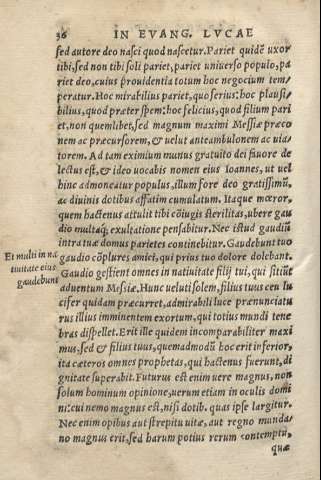 36 IN EVANG. LVCAE
sed autore deo nasci quod nascetur. Pariet quidẽ uxor
tibi, sed non tibi soli pariet, pariet universo populo, pa
riet deo, cuius prouidentia totum hoc negocium tem/
peratur. Hoc mirabilius pariet, quo serius: hoc plausi/
bilius, quod præter spem: hoc felicius, quod filium pari
et, non quemlibet, sed magnum maximi Messiæ præco
nem ac præcursorem, & uelut anteambulonem ac uia/
torem. Ad tam eximium munus gratuito dei fauore de
lectus est, & ideo uocabis nomen eius Ioannes, ut uel
hinc admoneatur populus, illum fore deo gratissimũ,
ac diuinis dotibus affatim cumulatum. Itaque mœror,
quem hactenus attulit tibi cõiugis sterilitas, ubere gau
dio multaq; exultatione pensabitur. Nec istud gaudiũ
intra tuæ domus parietes continebitur. Gaudebunt tuo
Et multi in na
tiuitate eius
gaudebunt
gaudio cõplures amici, qui prius tuo dolore dolebant.
Gaudio gestient omnes in natiuitate filij tui, qui sitiũt
aduentum Messiæ. Hunc uelut solem, filius tuus ceu lu
cifer quidam præcurret, admirabili luce prænunciatu
rus illius imminentem exortum, qui totius mundi tene
bras dispellet. Erit ille quidem incomparabiliter maxi
mus, sed & filius tuus, quemadmodũ hoc erit inferior,
ita cæteros omnes prophetas, qui hactenus fuerunt, di
gnitate superabit. Futurus est enim uere magnus, non
solum hominum opinione, uerum etiam in oculis domi
ni: cui nemo magnus est, nisi dotib. quas ipse largitur.
Nec enim opibus aut strepitu uitæ, aut regno munda/
no magnus erit, sed harum potius rerum contemptu,
quæ